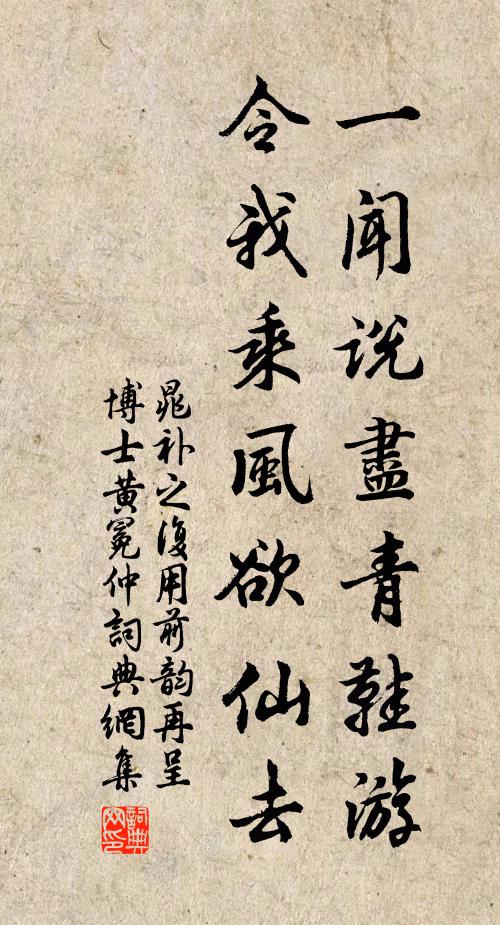 一聞説盡青鞋游
令我乘風欲仙去
晁补之復用前韵再呈
博士黄冕仲詞典網集
詞典
网印